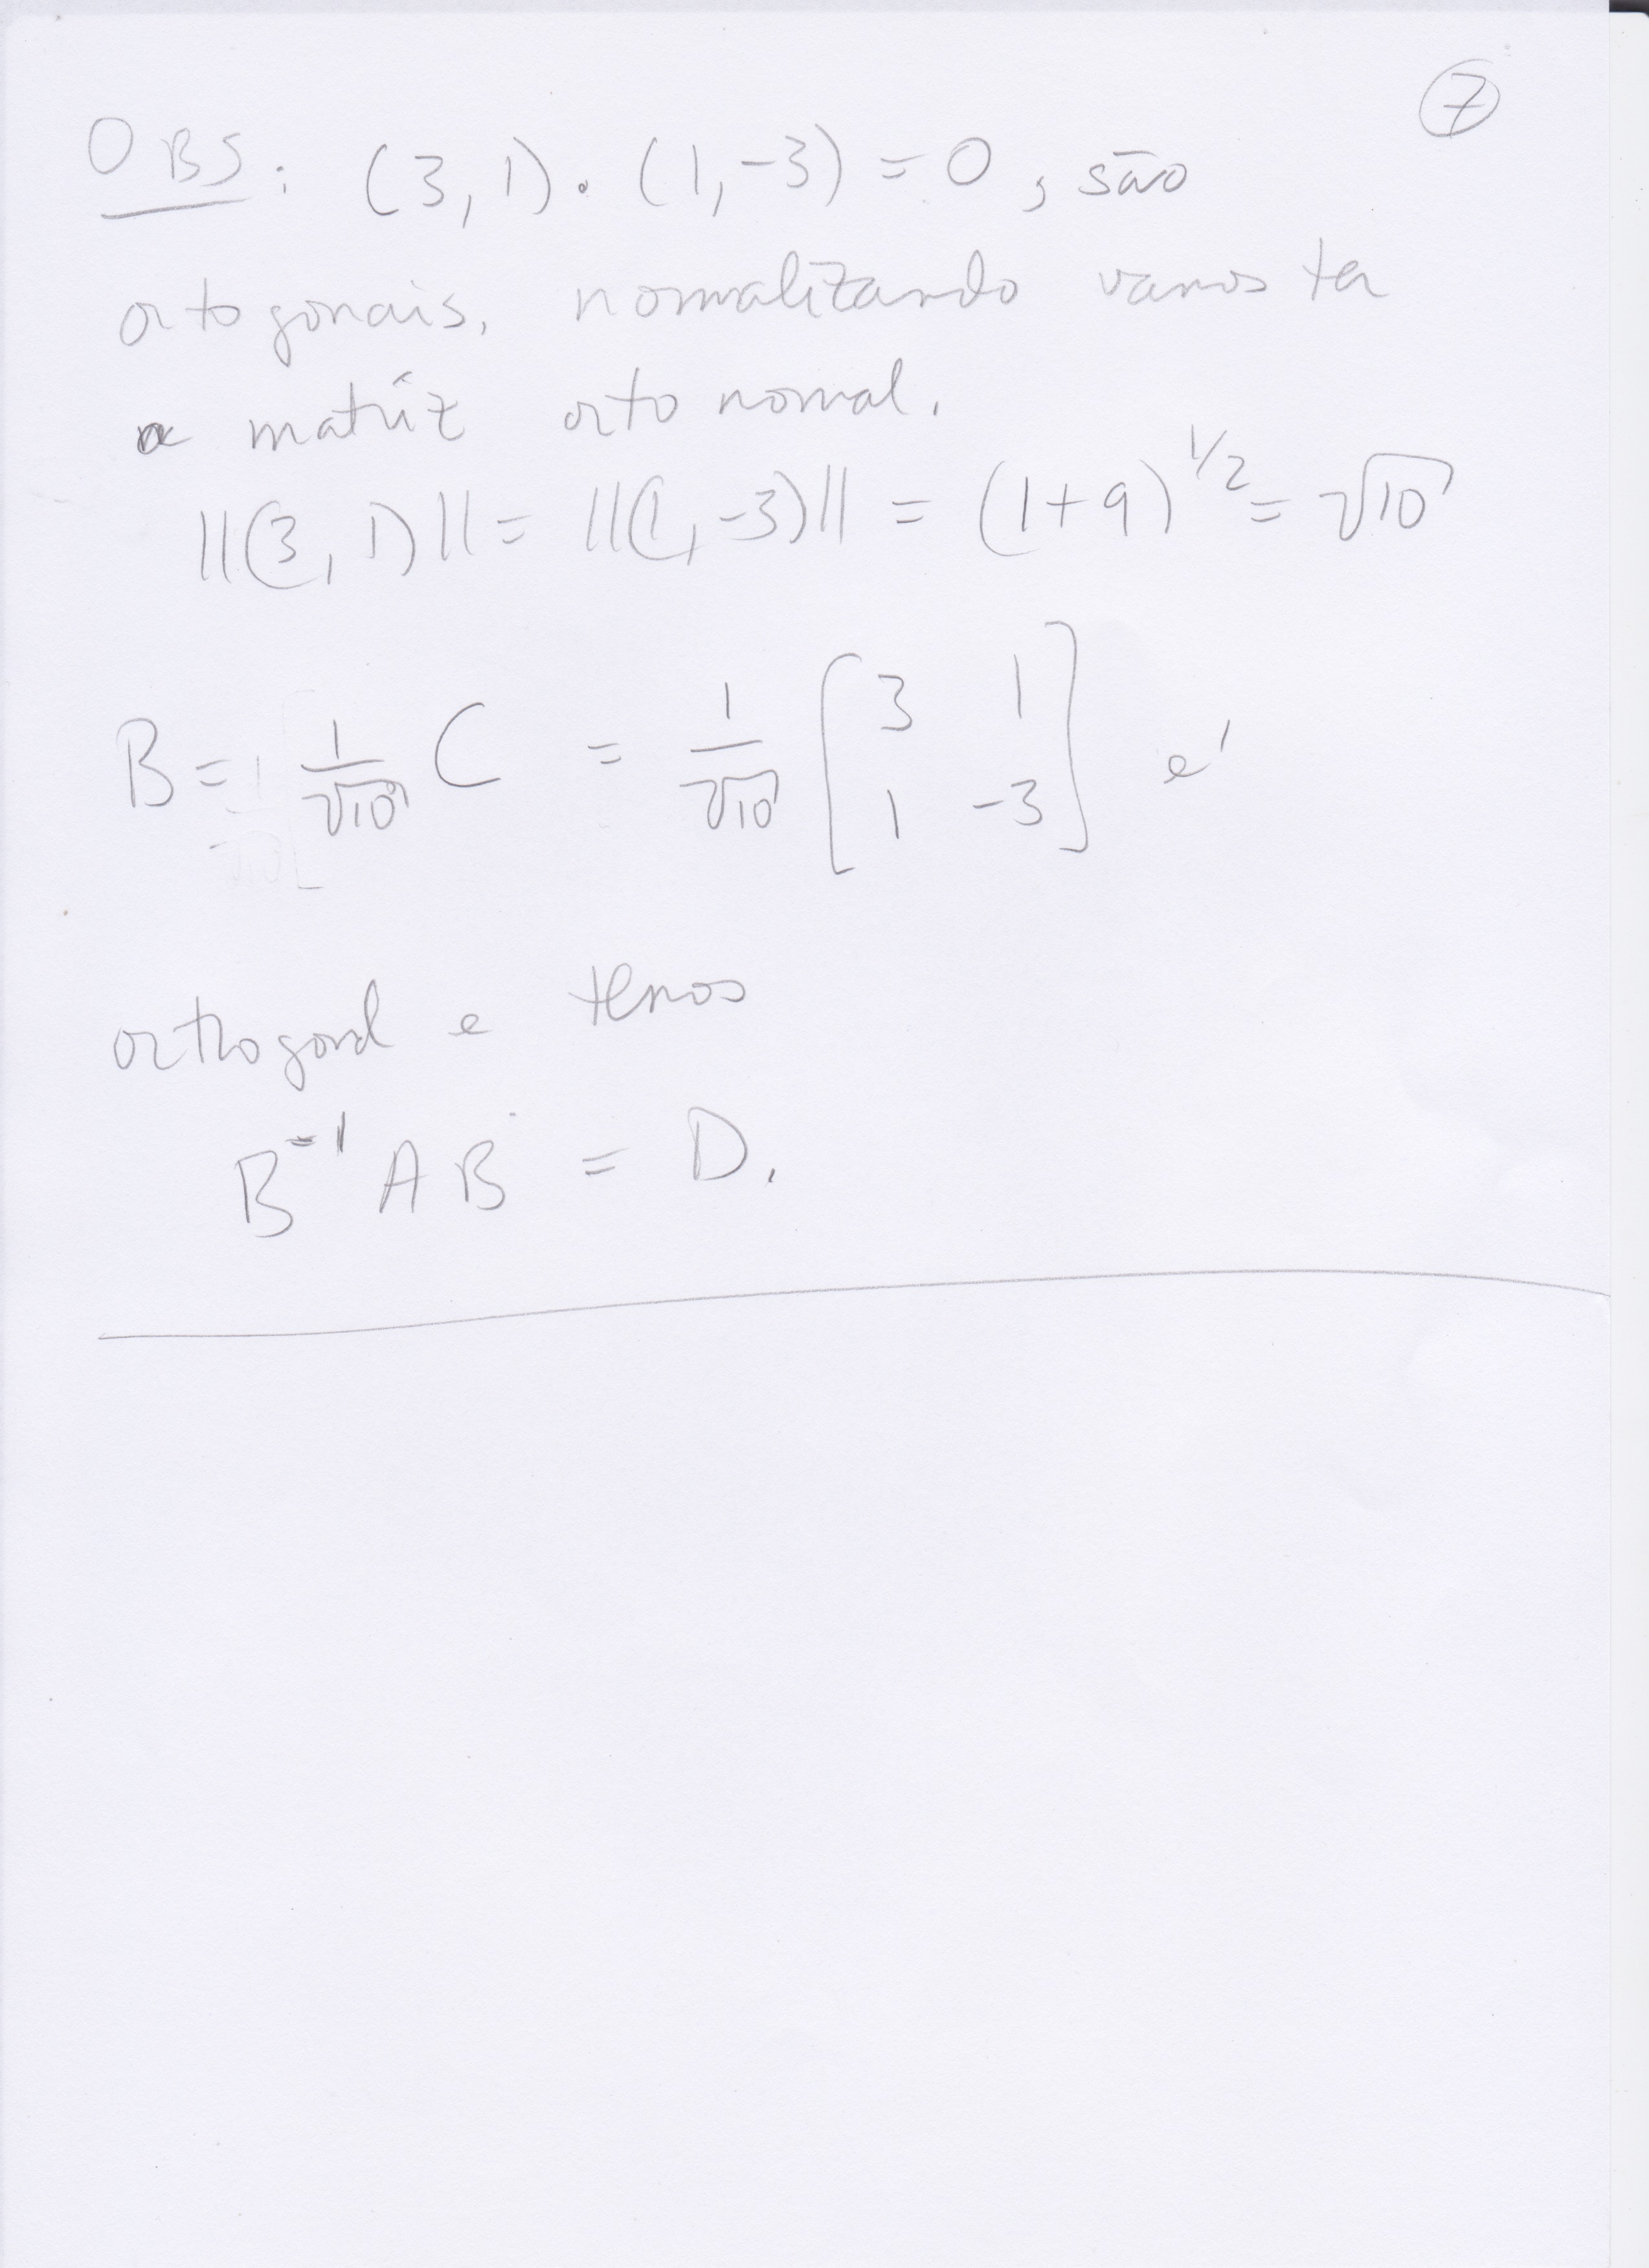 7
OBS: (3, 1) . (1, -3) = 0, são
ortogonais. normalizando vamos ter
a matríz ortonormal.
||(3, 1)|| = ||(1, -3)|| = (1+9)^1/2 = √10
B = 1/√10 C = 1/√10 [3 1; 1 -3] é
orthogonal e temos
B^-1 A B = D.